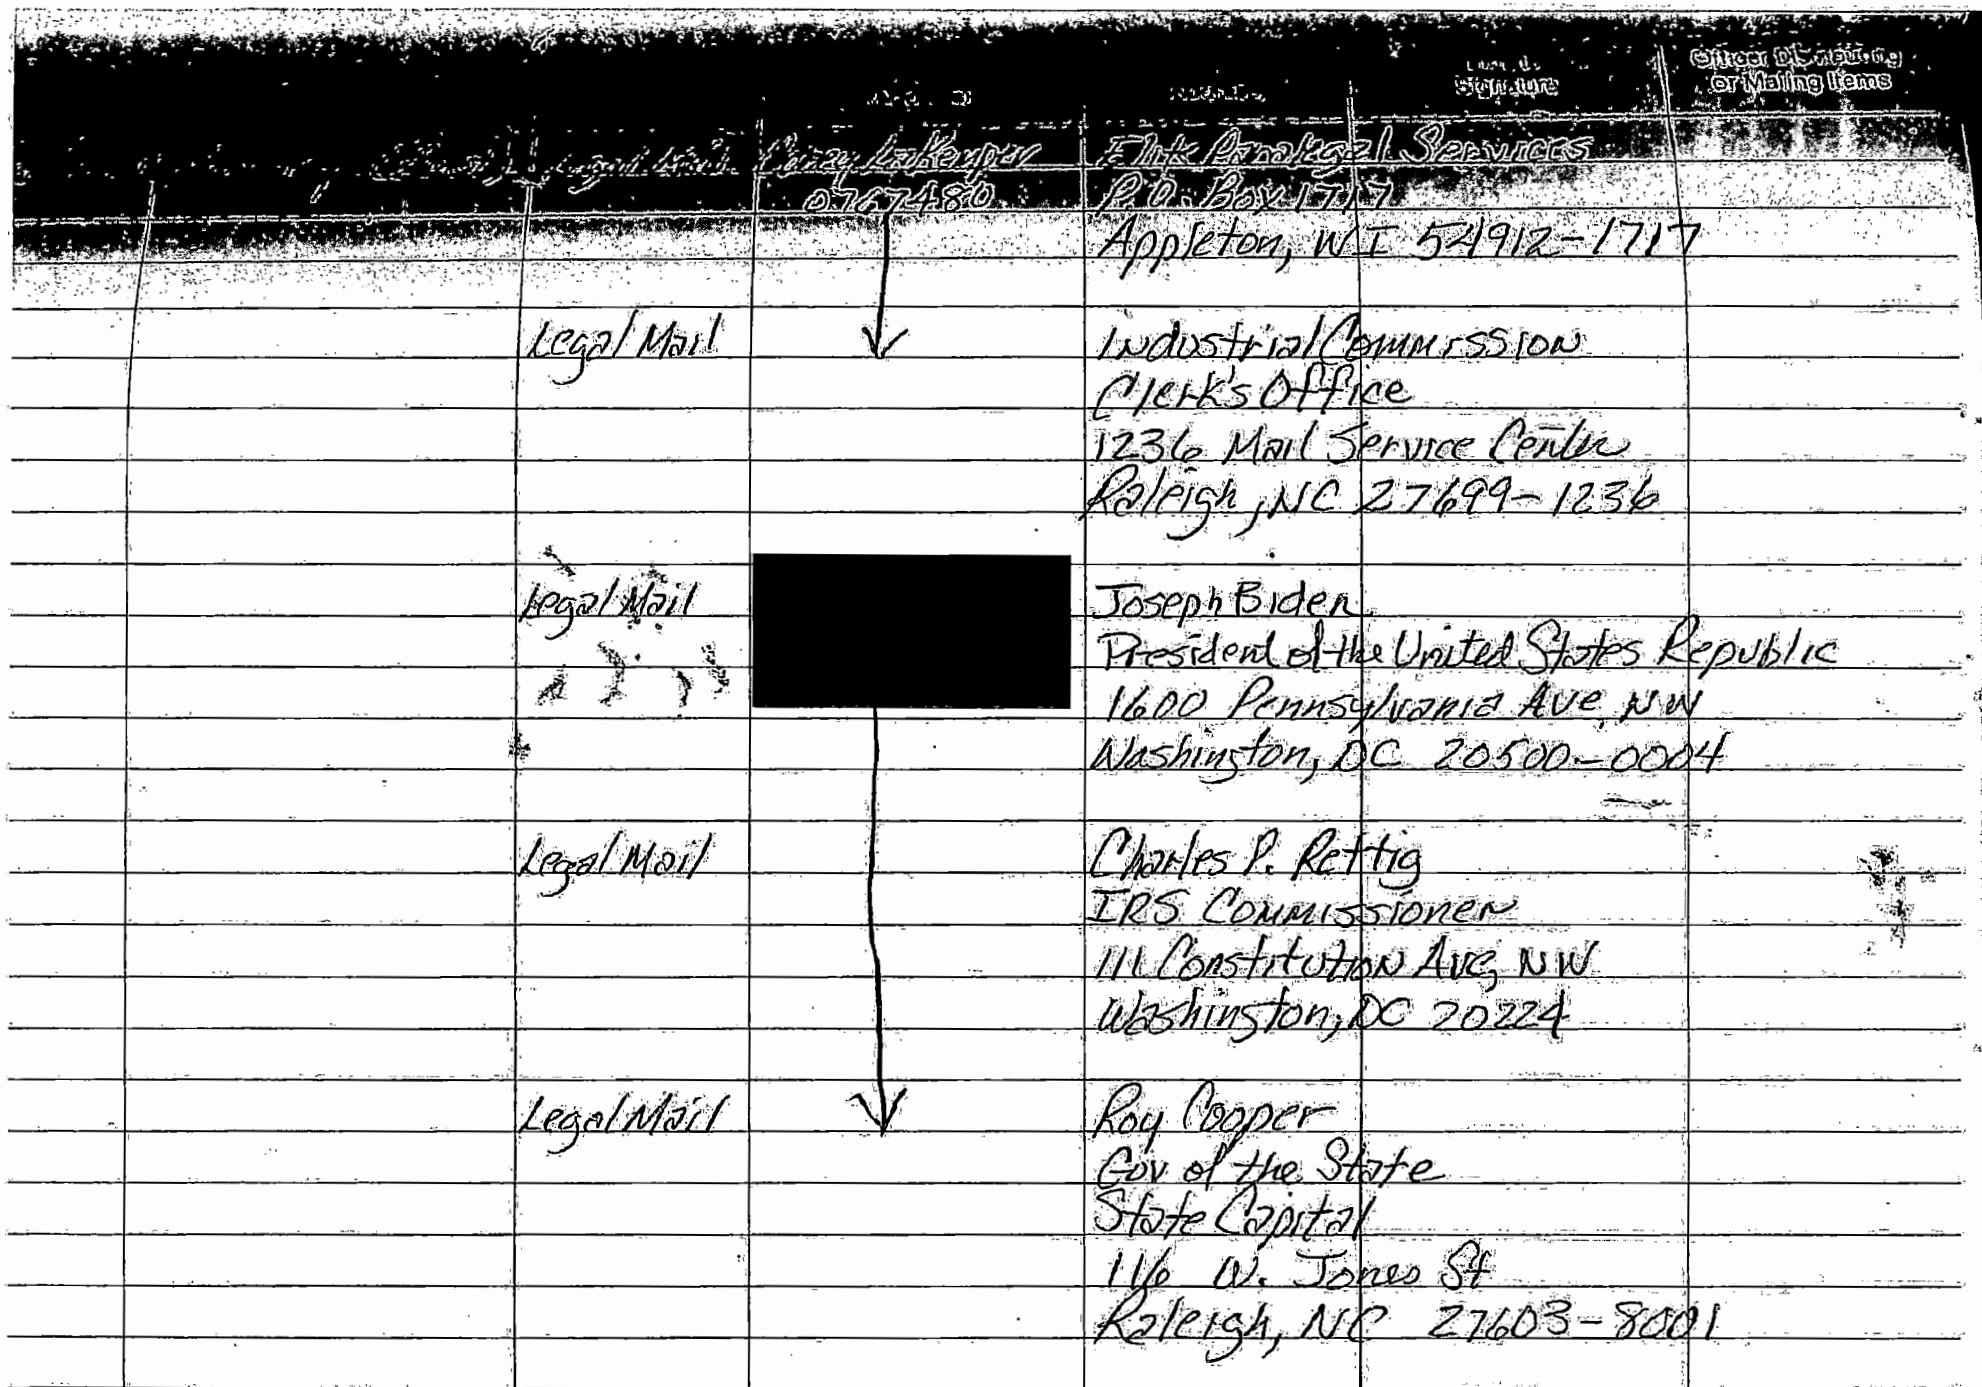 Signature
Officer Distributing
or Mailing Items
Legal Mail Elite Paralegal Services
0767480 P.O. Box 1717
Appleton, WI 54912-1717
Legal Mail Industrial Commission
Clerk's Office
1236 Mail Service Center
Raleigh, NC 27699-1236
Legal Mail Joseph Biden
President of the United States Republic
1600 Pennsylvania Ave NW
Washington, DC 20500-0004
Legal Mail Charles P. Rettig
IRS Commissioner
111 Constitution Ave, NW
Washington, DC 20224
Legal Mail Roy Cooper
Gov of the State
State Capital
116 W. Jones St
Raleigh, NC 27603-8001